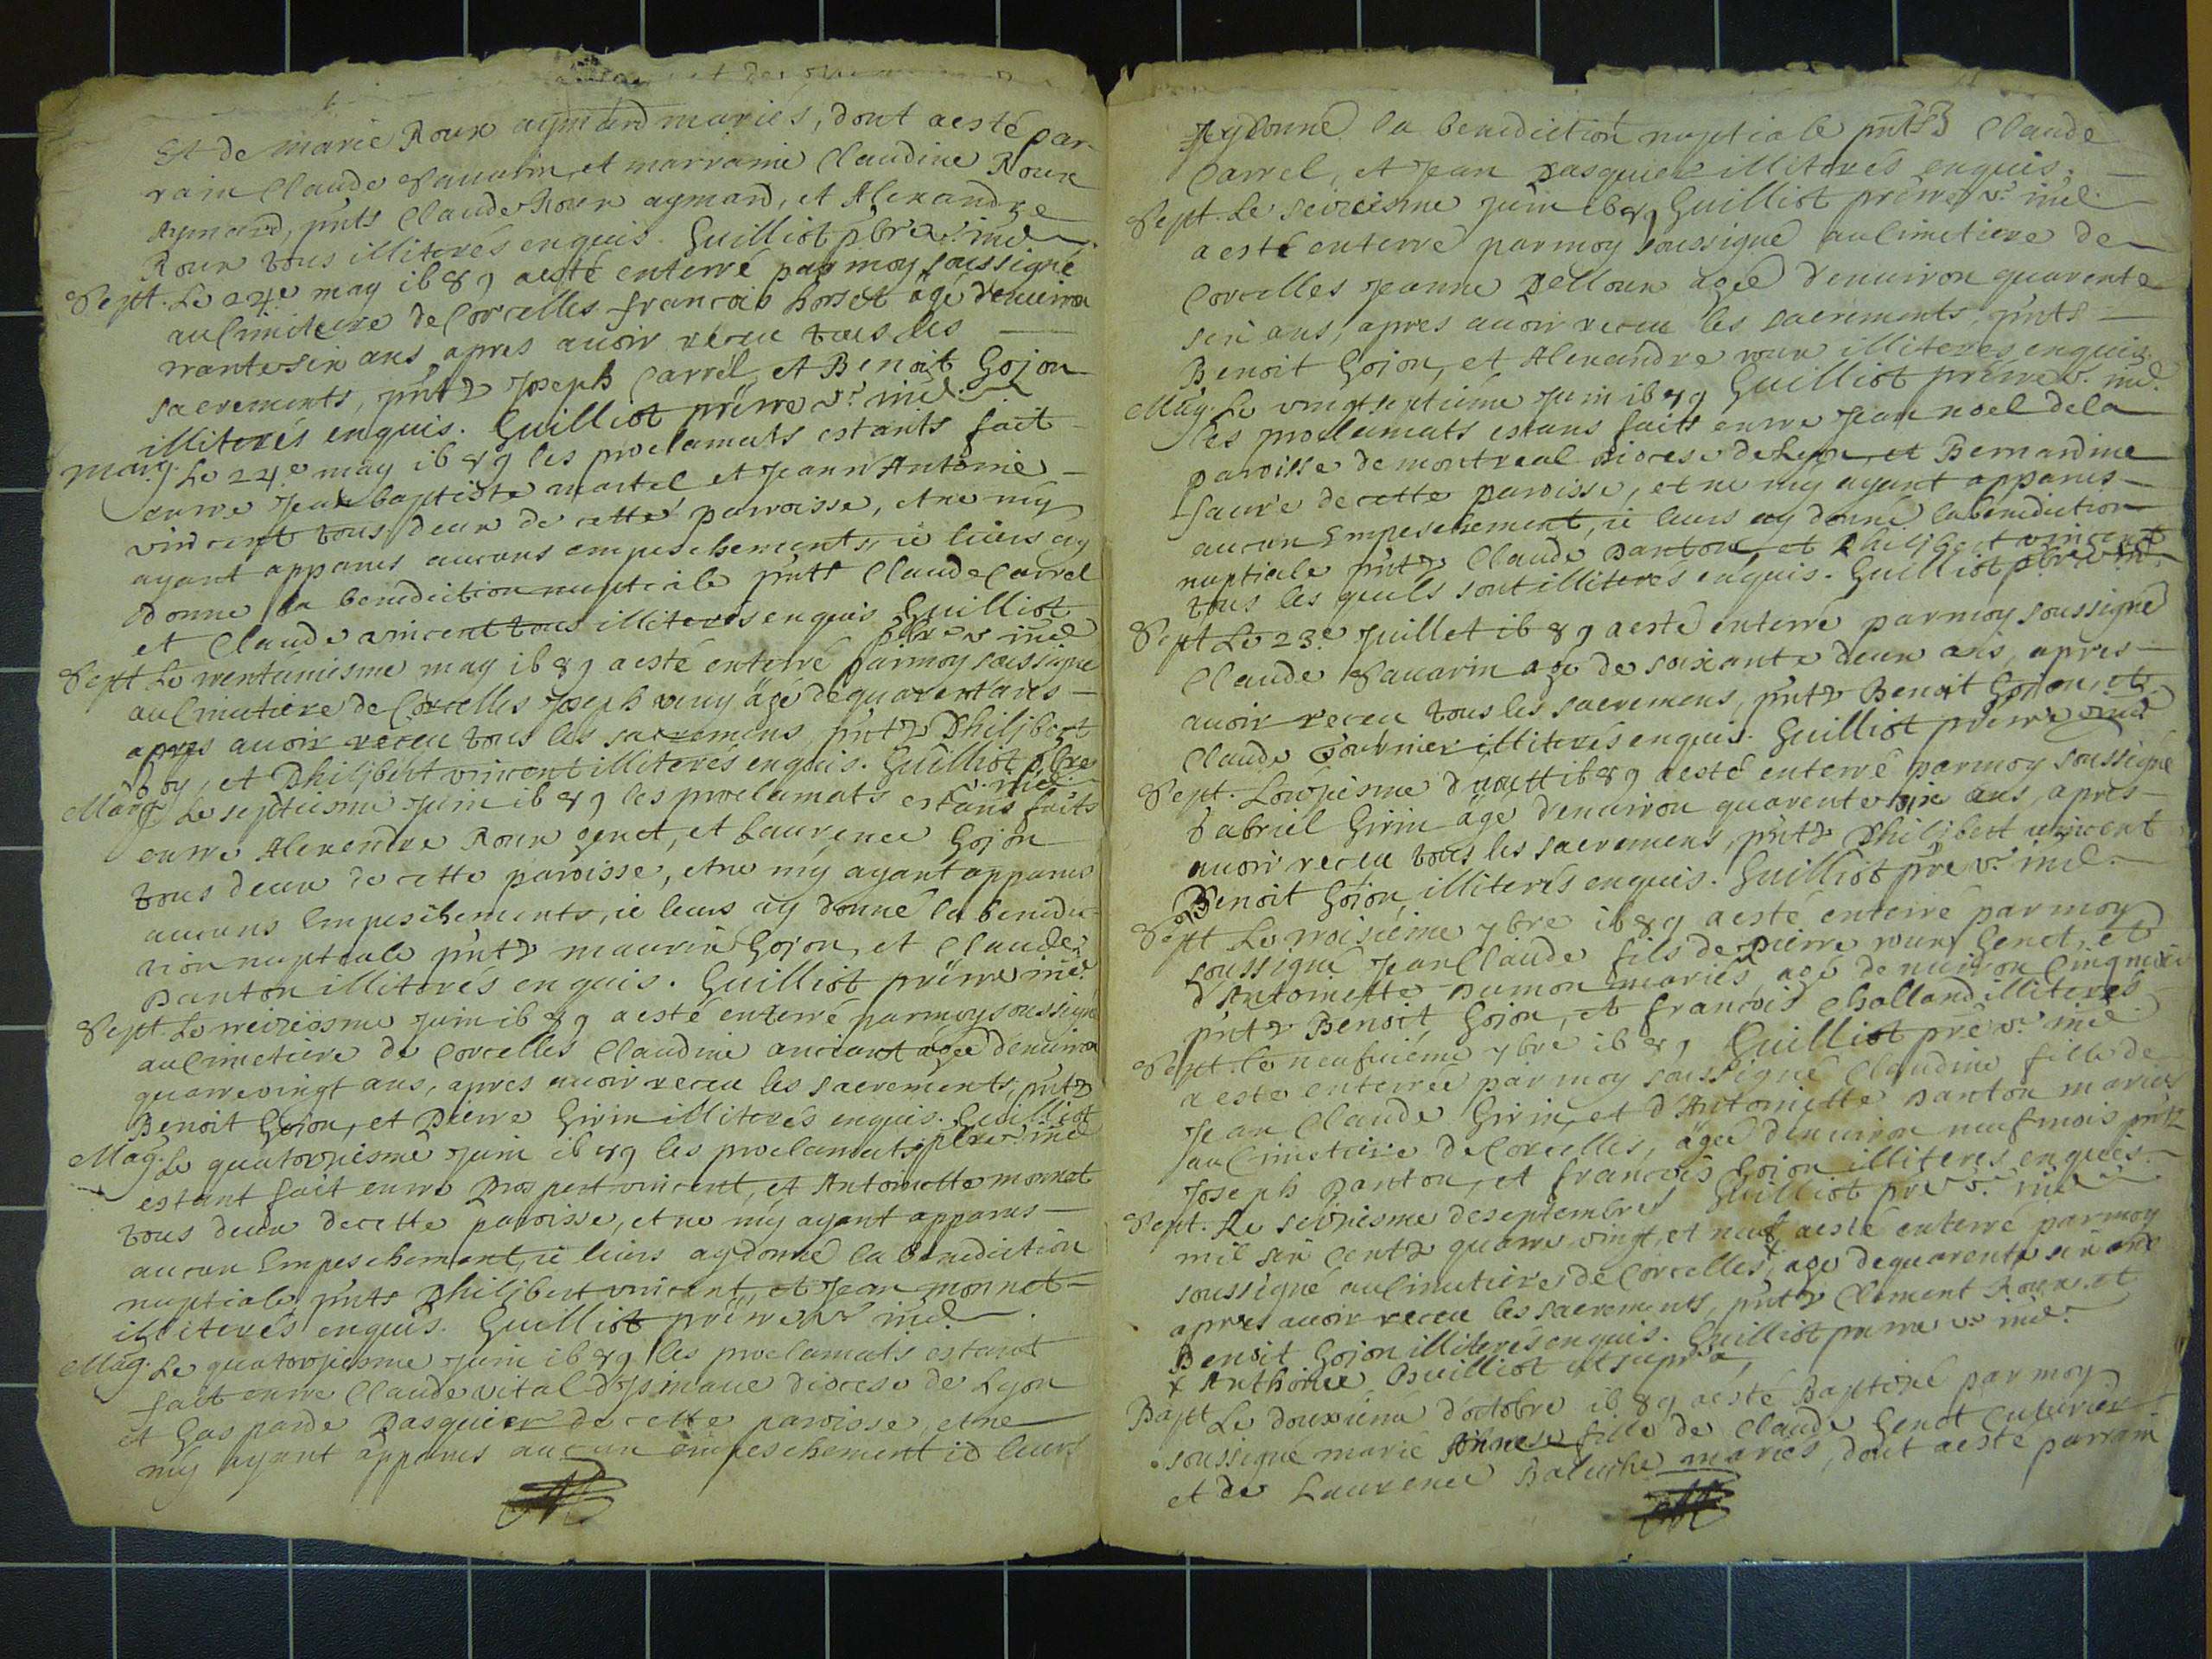 Et de marie Roux aymard mariés, dont a esté par-
rain Claude Sauarin, et marraine Claudine Roux
Aymard, pnts Claude Roux aymard, et Alexandre
Roux tous illiterés enquis. Guilliot pbre vre ind.
Sept. Le 24.e may 1689 a esté enterré par moy soussigné
au Cimitiere de Corcelles francois borset âgé d'enuiron
trante six ans apres auoir receu tous les
sacrements, pntz Joseph Carrel, et Benoit Gojon
illiterés enquis. Guilliot prêtre vre ind.
Mariag. Le 24.e may 1689 les proclamats estants fait
entre Jean baptiste martel et Jeann'Antoinie
vincent tous deux de cette parroisse, et ne m'y
ayant apparus aucuns empeschements, ie leurs ay
donne la benediction nuptiale pnts Claude Carrel
et Claude vincent tous illiterés enquis Guilliot
pbre v ind
Sept Le trentuniesme may 1689 a esté enterré par moy soussigné
au Cimitiere de Corcelles Joseph âgé de quarent'ans
apres auoir receu tous les sacremens, pntz Philibert
boy, et Philibert vincent illiterés enquis. Guilliot pbre
v. ind
Mariag Le septiesme Juin 1689 les proclamats estans faits
entre Alexendre Roux genet, et Laurence Gojon
tous deux de cette paroisse, et ne m'y ayant apparus
aucuns Empeschements, ie leurs ay donné la benedic-
tion nuptiale pntz maurin Gojon, et Claude
Panton illiterés enquis. Guilliot prêtre ind.
Sept. Le treiziesme Juin 1689 a esté enterré par moy soussigné
au Cimetiere de Corcelles Claudine anciant âgée d'enuiron
quatre vingt ans, apres auoir receu les sacrements, pntz
Benoit Gojon, et Pierre Girin illiterés enquis. Guilliot
pbre v. ind
Mag. Le quatorziesme Juin 1689 les proclamats
estant fait entre Prospert vincent, et Antoinette monnet
tous deux de cette paroisse, et ne m'y ayant apparus
aucun Empeschement, ie leurs ay donné la benediction
nuptiale pnts Philibert vincent, et Jean monnet
illiterés enquis. Guilliot prêtre vr ind.
Mag. Le quatorziesme Juin 1689 les proclamats estant
fait entre Claude vital diocese de Lyon
et Gasparde Pasquier de cette paroisse, et ne
m'y ayant apparus aucun empeschement ie leurs
ay donné la benediction nuptiale pnts Claude
Carrel, et Jean Pasquier illiterés enquis.
Guilliot prêtre vr ind.
Sept. Le seiziesme Juin 1689
a esté enterré par moy soussigné au Cimetiere de
Corcelles Jeanne Pelloux agée d'enuiron quarente
six ans, apres auoir receu les sacrements, pnts
Benoit Gojon, et Alexandre roux illiterés enquis.
Guilliot prêtre v. ind.
Mag. Le vingt septiéme Juin 1689
les proclamats estans faits entre Jean noel de la
paroisse de montreal diocese de Lyon, et Bernardine
faure de cette paroisse, et ne m'y ayant apparus
aucun Empeschement, ie leurs ay donné la benediction
nuptiale pntz Claude Panton, et Philibert vincent
tous les quels sont illiterés enquis. Guilliot pbre v. ind.
Sept Le 23.e Juillet 1689 a esté enterré par moy soussigné
Claude Sauarin agé de soixante deux ans, apres
auoir receu tous les sacremens, pntz Benoit Gojon, et
Claude illiterés enquis. Guilliot prêtre v ind
Sept. L'onzjesme d'aoust 1689 a esté enterré par moy soussigné
Gabriel Girin âgé d'enuiron quarente six ans, apres
auoir receu tous les sacremens, pntz Philibert vincent
Benoit Gojon illiterés enquis. Guilliot pre vr ind.
Sept Le troisiéme 7bre 1689 a esté enterré par moy
soussigné Jean Claude fils de Pierre roux Genet, et
d'Antoinette Dumon mariés, agé d'enuiron cinq mois
pntz Benoit Gojon, et francois Challand illiterés
Guilliot pre vr ind.
Sept. Le neufuiéme 7bre 1689
a esté enterrée par moy soussigné Claudine fille de
Jean Claude Girin, et d'Antoinette Panton mariés
au Cimetiere de Corcelles, âgée d'enuiron neuf mois pntz
Joseph Panton, et francois Gojon illiterés enquis.
Guilliot pre vr ind
Sept. Le seiziesme de septembre
mil six centz quatre vingt, et neuf a esté enterré par moy
soussigné au Cimetiere de Corcelles x age de quarente six ans
apres auoir receu les sacrements, pntz Clement Roux et
Benoit Gojon illiterés enquis. Guilliot prêtre vr ind.
x Anthoine Guilliot ut supra
Bapt Le douxiéme d'octobre 1689 a esté Baptizé par moy
soussigné marie fille de Claude Genet Cuturier
et de Laurence mariés, dont a esté parrain